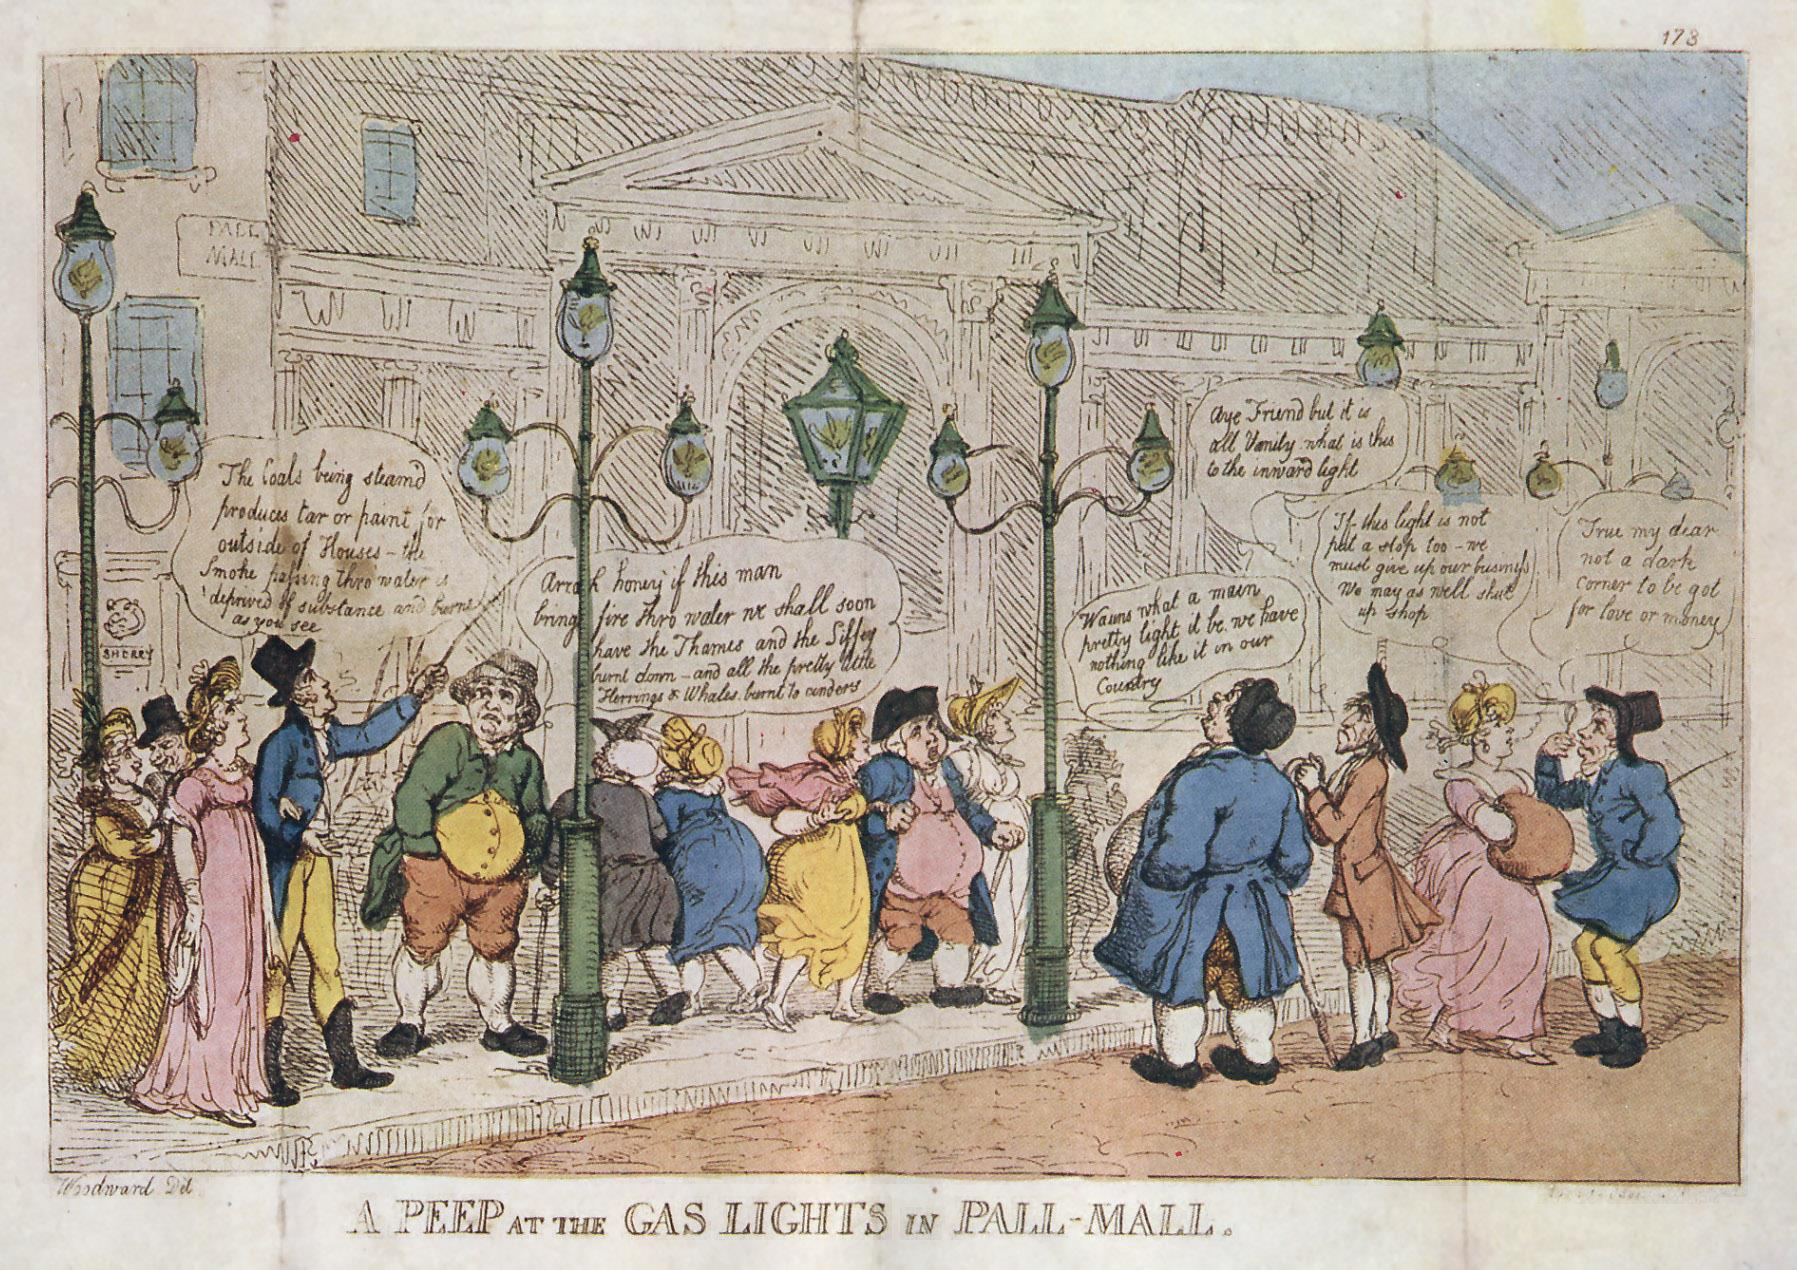 173
PALL
MALL
The Coals being steam'd
produces tar or paint for
outside of Houses – the
Smoke passing thro water is
deprived of substance and burns
as you see
Arrah honey if this man
bring fire thro water we shall soon
have the Thames and the Liffey
burnt down – and all the pretty little
Herrings & Whales burnt to cinders
Wauns what a main
pretty light it be we have
nothing like it in our
Country
Aye Friend but it is
all Vanity what is this
to the inward light
If this light is not
put a stop too – we
must give up our business
We may as well shut
up shop
True my dear
not a dark
corner to be got
for love or money
SHERRY
Woodward Del
A PEEP AT THE GAS LIGHTS IN PALL-MALL.